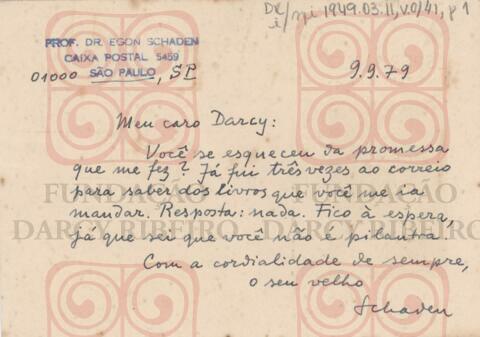 DR/
i/mpi 1949.03.11, V.0/41, p1
PROF. DR. EGON SCHADEN
CAIXA POSTAL 5459
01000 SÃO PAULO, SP
9.9.79
Meu caro Darcy:
Você se esqueceu da promessa
que me fez? Já fui três vezes ao correio
para saber dos livros que você me ia
mandar. Resposta: nada. Fico à espera,
já que sei que você não é pilantra.
Com a cordialidade de sempre,
o seu velho
Schaden
FUNDAÇÃO
DARCY RIBEIRO
FUNDAÇÃO
DARCY RIBEIRO